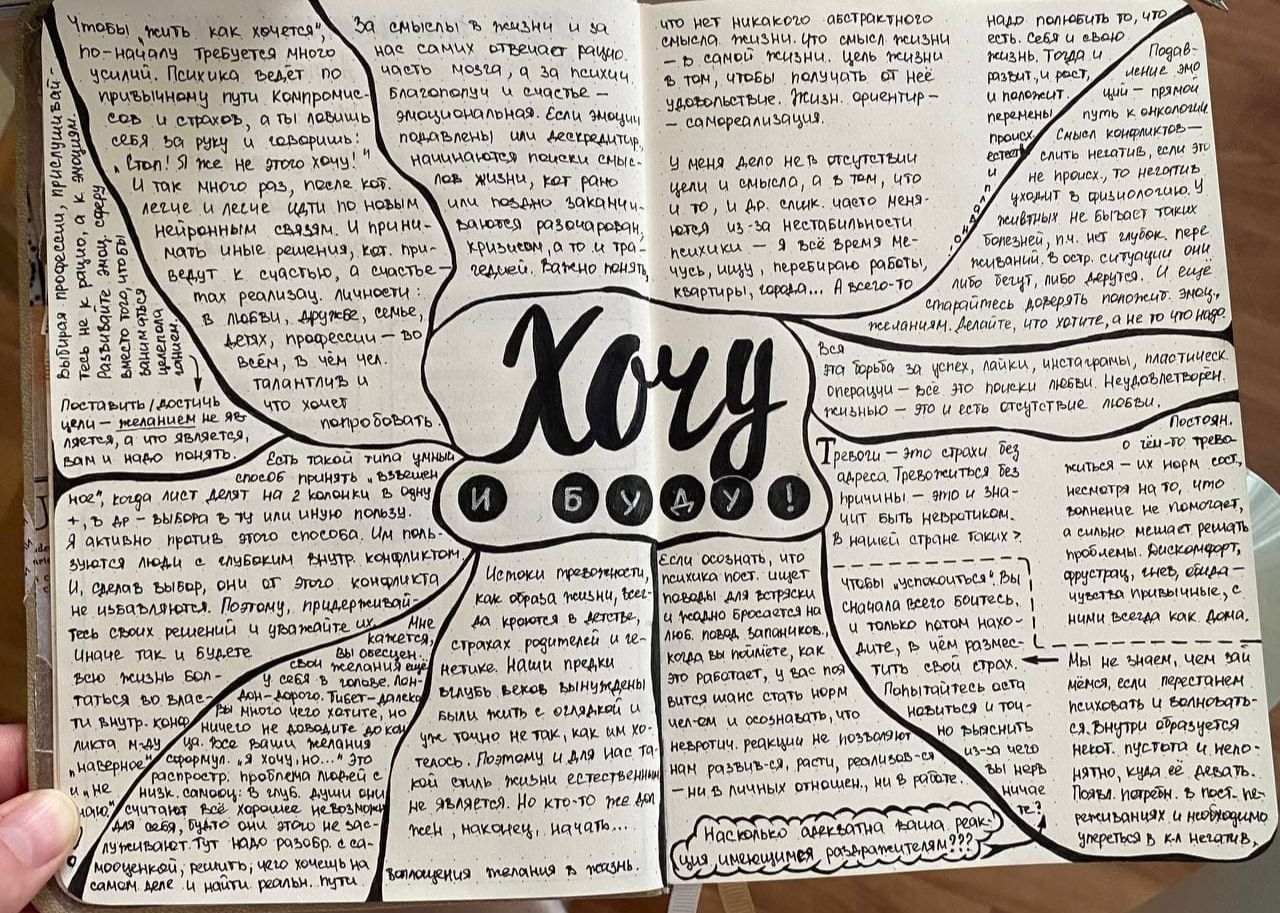 Чтобы „жить как хочется",
по-началу требуется много
усилий. Психика ведёт по
привычному пути компромис-
сов и страхов, а ты ловишь
себя за руку и говоришь:
„Стоп! Я же не этого хочу!"
И так много раз, после кот.
легче и легче идти по новым
нейронным связям. И прини-
мать иные решения, кот. при-
ведут к счастью, а счастье –
так реализац. личности:
в любви, дружбе, семье,
детях, профессии – во
всём, в чём чел.
талантлив и
что хочет
попробовать.
Выбирая профессии, прислушивай-
тесь не к рацио, а к эмоциям.
Развивайте эмоц. сферу
вместо того, чтобы
заниматься
целепола
ганием.
Поставить/достичь
цели – желанием не яв-
ляется, а что является,
вам и надо понять.
За смыслы в жизни и за
нас самих отвечает рацио.
часть мозга, а за психич.
благополуч и счастье –
эмоциональная. Если эмоции
подавлены или дескредитир,
начинаются поиски смыс-
лов жизни, кот рано
или поздно заканчи-
ваются разочарован,
кризисом, а то и тра-
гедией. Важно понять,
что нет никакого абстрактного
смысла жизни. Что смысл жизни
– в самой жизни. Цель жизни
в том, чтобы получать от неё
удовольствие. Жизн. ориентир –
– самореализация.
У меня дело не в отсутствии
цели и смысла, а в том, что
и то, и др. слик. часто меня-
ются из-за нестабильности
психики – я всё время ме-
чусь, ищу, перебираю работы,
квартиры, города... А всего-то
надо полюбить то, что
есть. Себя и свою
жизнь. Тогда и
развит, и рост,
и положит.
перемены
происх.
естеств
и
Подав-
ление эмо
ций – прямой
путь к онкологии.
Смысл конфликтов –
слить негатив, если это
не происх., то негатив
уходит в физиологию. У
животных не бывает таких
болезней, п.ч. нет глубок. пере
живаний. В остр. ситуации они
либо бегут, либо дерутся. И ещё
старайтесь доверять положит. эмоц.,
желаниям. Делайте, что хотите, а не то что надо.
Хочу
И БУДУ!
Вся
эта борьба за успех, лайки, инстаграмы, пластическ.
операции – всё это поиски любви. Неудовлетворён.
жизнью – это и есть отсутствие любви.
Есть такой типа умный
способ принять „взвешен
ное", когда лист делят на 2 колонки в одну
+, в др – выбора в ту или иную пользу.
Я активно против этого способа. Им поль-
зуются люди с глубоким внутр. конфликтом.
И, сделав выбор, они от этого конфликта
не избавляются. Поэтому, придерживай-
тесь своих решений и уважайте их.
Иначе так и будете
всю жизнь бол-
таться во влас-
ти внутр. конф
ликта м-ду
„наверное"
и „не
знаю"
Мне
кажется,
вы обесцен.
свои желания ещё
у себя в голове. Лон-
дон – дорого. Тибет – далеко
Вы много чего хотите, но
ничего не доводите до кон
ца. Все ваши желания
сформул. „Я хочу, но..." Это
распростр. проблема людей с
низк. самооц: в глуб. души они
считают всё хорошее невозможн
для себя, будто они этого не зас-
луживают. Тут надо разобр. с са-
мооценкой, решить, чего хочешь на
самом деле и найти реальн. пути
воплощения желания в жизнь.
Истоки тревожности,
как образа жизни, всег-
да кроются в детстве,
страхах родителей и ге-
нетике. Наши предки
вглубь веков вынуждены
были жить с оглядкой и
уж точно не так, как им хо-
телось. Поэтому и для нас та-
кой стиль жизни естественным
не является. Но кто-то же дол
жен, наконец, начать...
Если осознать, что
психика пост. ищет
поводы для встряски
и жадно бросается на
люб. повод запаников.,
когда вы поймёте, как
это работает, у вас поя
вится шанс стать норм
чел-ом и осознавать, что
невротич. реакции не позволяют
нам развив-ся, расти, реализов-ся
– ни в личных отношен., ни в работе.
Насколько адекватна ваша реак-
ция имеющимся раздражителям???
Тревоги – это страхи без
адреса. Тревожиться без
причины – это и зна-
чит быть невротиком.
В нашей стране таких >.
Постоян.
о чём-то трево-
житься – их норм сост.,
несмотря на то, что
волнение не помогает,
а сильно мешает решать
проблемы. Дискомфорт,
фрустрац, гнев, обида –
чувства привычные, с
ними всегда как дома.
Чтобы „успокоиться", Вы
сначала всего боитесь,
и только потом нахо-
дите, в чём размес-
тить свой страх.
Попытайтесь оста
новиться и точ-
но выяснить
из-за чего
вы нерв
ничае
те?
Мы не знаем, чем зай
мёмся, если перестанем
психовать и волновать-
ся. Внутри образуется
некот. пустота и непо-
нятно, куда её девать.
Появл. потребн. в пост. пе-
реживаниях и необходимо
упереться в к-л негатив.